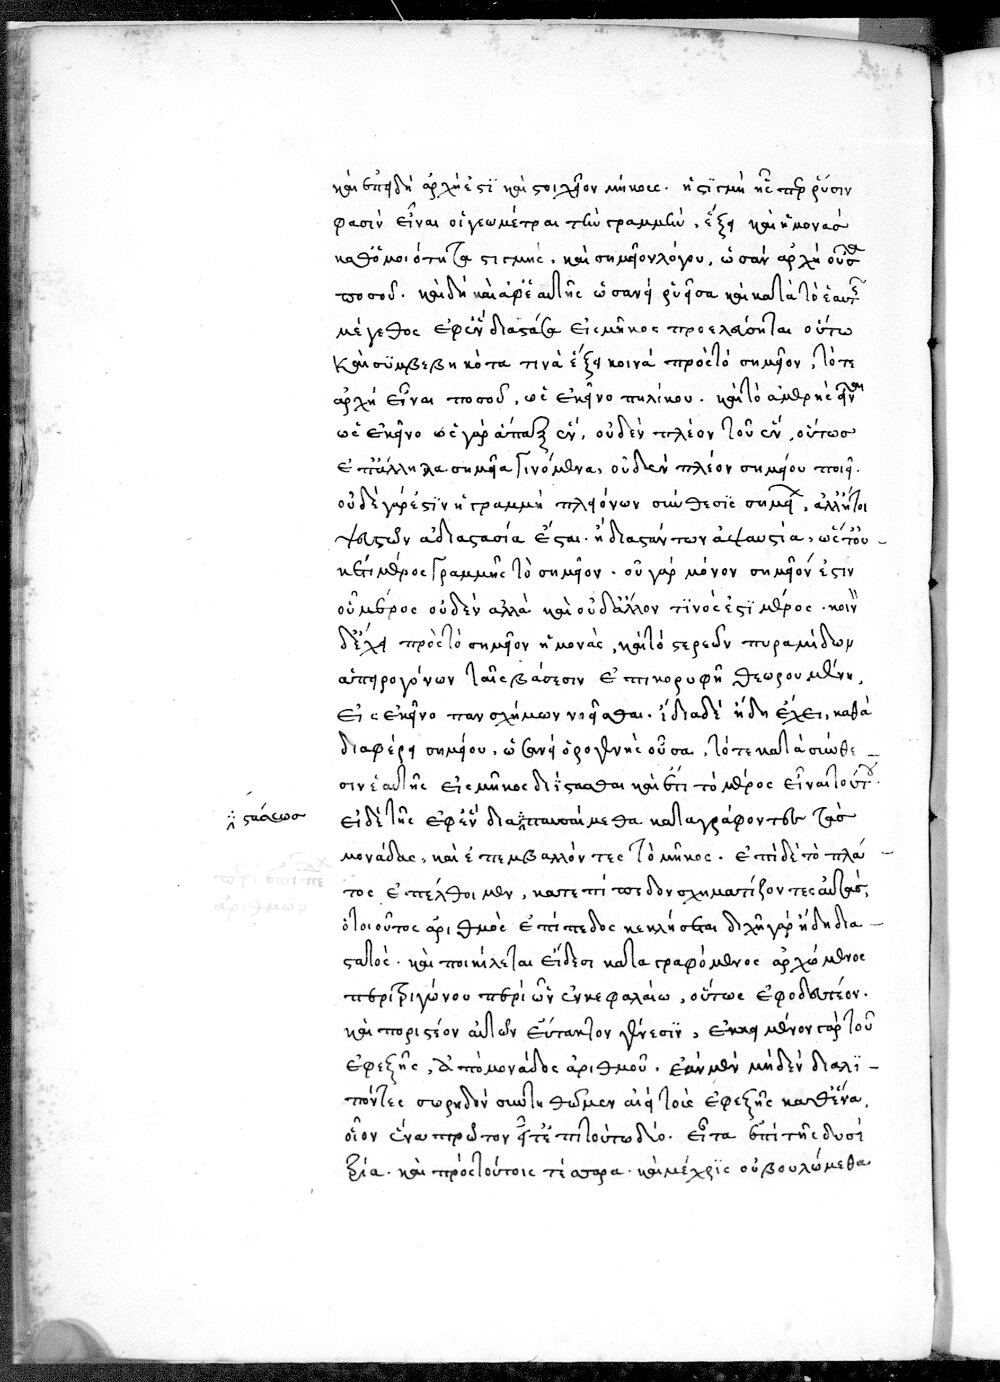 καὶ ἐπειδὴ ἀρχή ἐστι καὶ στοιχεῖον μήκους. ἡ στιγμὴ ἧς περ ῥύσιν
φασὶν εἶναι οἱ γεωμέτραι τὴν γραμμήν, ἕξει καὶ ἡ μονὰς
καθ' ὁμοιότητα στιγμῆς, καὶ σημεῖον λόγου, ὡσὰν ἀρχὴ οὖσα
ποσοῦ. καὶ δὴ καὶ ἀφ' ἑαυτῆς ὡσανεὶ ῥυεῖσα καὶ κατὰ τὸ ἑαυτῆς
μέγεθος ἐφ' ἓν διαστᾶσα εἰς μῆκος προελεύσηται οὕτω
καὶ συμβεβηκότα τινὰ ἕξει κοινὰ πρὸς τὸ σημεῖον, τό τε
ἀρχὴ εἶναι ποσοῦ, ὡς ἐκεῖνο πηλίκου. καὶ τὸ ἀμερὴς εἶναι
ὡς ἐκεῖνο ὡς γὰρ ἅπαξ ἕν, οὐδὲν πλέον τοῦ ἕν, οὕτως
ἐπάλληλα σημεῖα γινόμενα, οὐδὲν πλέον σημείου ποιεῖ.
οὐδὲ γάρ ἐστιν ἡ γραμμὴ πλειόνων σύνθεσις σημείων, ἀλλ' ἤτοι
ἀδιαστασία ἔσται. ἢ διαστάντων ἀψαυστία, ὡς τὸ οὐ-
κέτι μέρος γραμμῆς τὸ σημεῖον. οὐ γὰρ μόνον σημεῖόν ἐστιν
οὗ μέρος οὐδὲν ἀλλὰ καὶ οὐδ' ἄλλου τινός ἐστι μέρος. κοινὸν
δ' ἔχει πρὸς τὸ σημεῖον ἡ μονάς, καὶ τὸ στερεῶν πυραμίδων
ἀπειρογόνων ταῖς βάσεσιν ἐπὶ κορυφῇ θεωρουμένη,
εἰς ἐκεῖνο πᾶν σχῆμον νοεῖσθαι. ἴδια δὲ ἤδη ἔχει, καθὰ
διαφέρει σημείου, ὡσανεὶ ὁρογενὴς οὖσα, τό τε κατὰ σύνθε-
σιν ἑαυτῆς εἰς μῆκος διίστασθαι καὶ ἔτι τὸ μέρος εἶναι τούτου.
εἰ δὲ τῆς ἐφ' ἓν διαπαυσαίμεθα καταγράφοντες τὰς
στάσεως
μονάδας, καὶ ἐπεμβάλλοντες τὸ μῆκος. ἐπὶ δὲ τὸ πλά-
τος ἐπέλθοιμεν, κατ' ἐπίπεδον σχηματίζοντες αὐτάς,
ὁ τοιοῦτος ἀριθμὸς ἐπίπεδος κεκλήσεται διχῇ γὰρ ἤδη δια-
στατός. καὶ ποικίλεται εἴδεσι καταγραφόμενος ἀρχόμενος
περὶ τριγώνου περὶ ὧν ἐν κεφαλαίῳ, οὕτως ἐφοδευτέον.
καὶ ποριστέον αὐτῶν εὔτακτον γένεσιν, ἐκκειμένου γὰρ τοῦ
ἐφεξῆς, ἀπὸ μονάδος ἀριθμοῦ. ἐὰν μὲν μηδὲν διαλι-
πόντες σωρηδὸν συντιθῶμεν αἰεὶ τοὺς ἐφεξῆς καθ' ἕνα,
οἷον ἕνα πρῶτον εἶτ' ἐπὶ τούτῳ δύο. εἶτα ἐπὶ τῆς δυσὶ
τρία. καὶ πρὸς τούτοις τέσσαρα. καὶ μέχρις οὗ βουλώμεθα